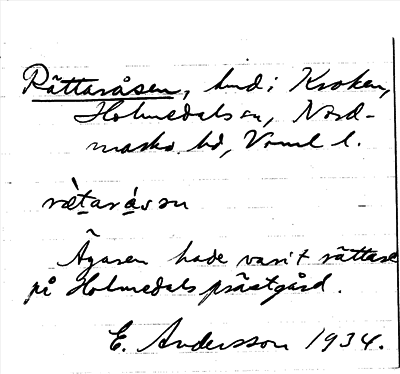 Rättaråsen, hmd i Kroken,
Holmedals sn, Nord-
marks hd, Vrml l.
rätaråsen
Ägaren hade varit rättare
på Holmedals prästgård.
E. Andersson 1934.